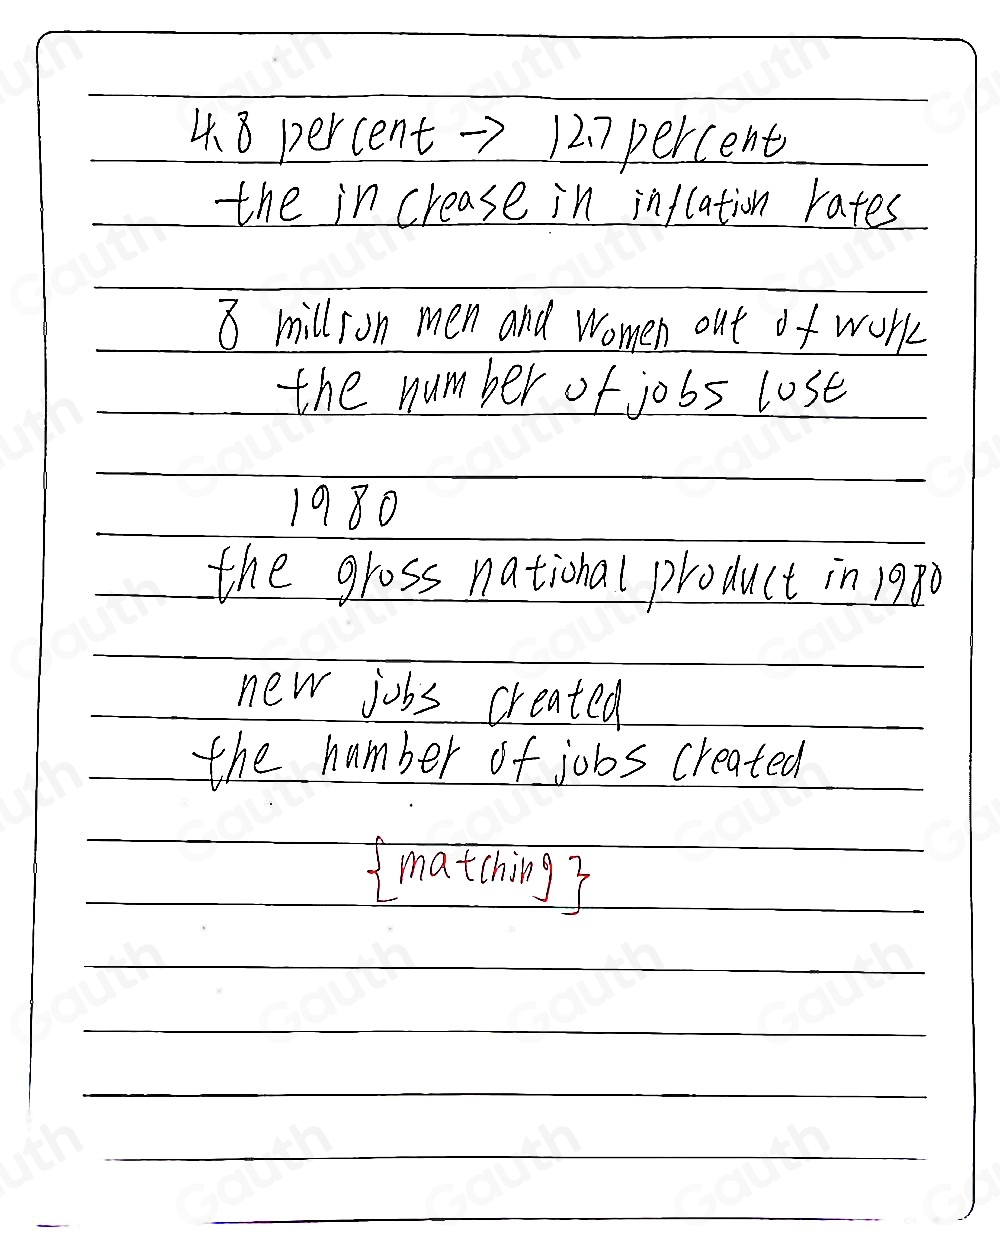 4.8 percent -> 12.7 percent
the increase in inflation rates
8 million men and women out of work
the number of jobs lose
1980
the gross national product in 1980
new jobs created
the number of jobs created
{matching}